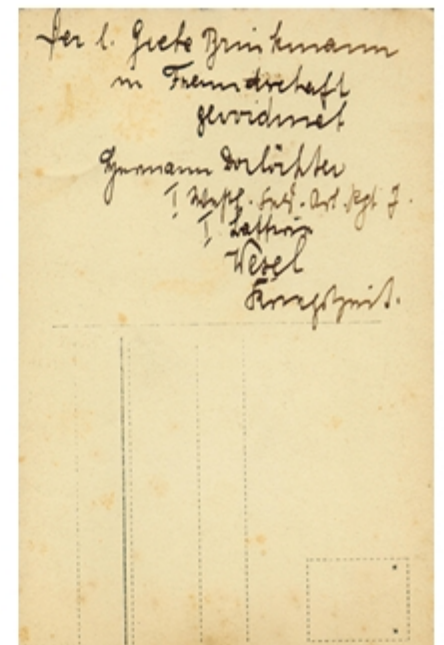 Der l. Grete Brinkmann
in Freundschaft
gewidmet
Hermann Dorlöchter
I Westf. Feld. Art. Rgt 7.
I. Batterie
Wesel
Kriegszeit.